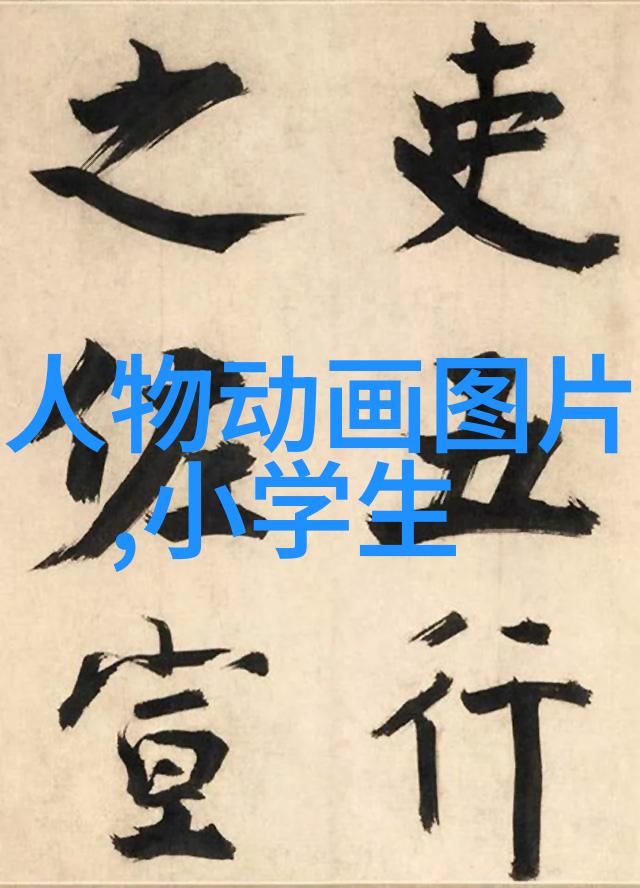 吏行
之宣
人物动画图片
,小学生